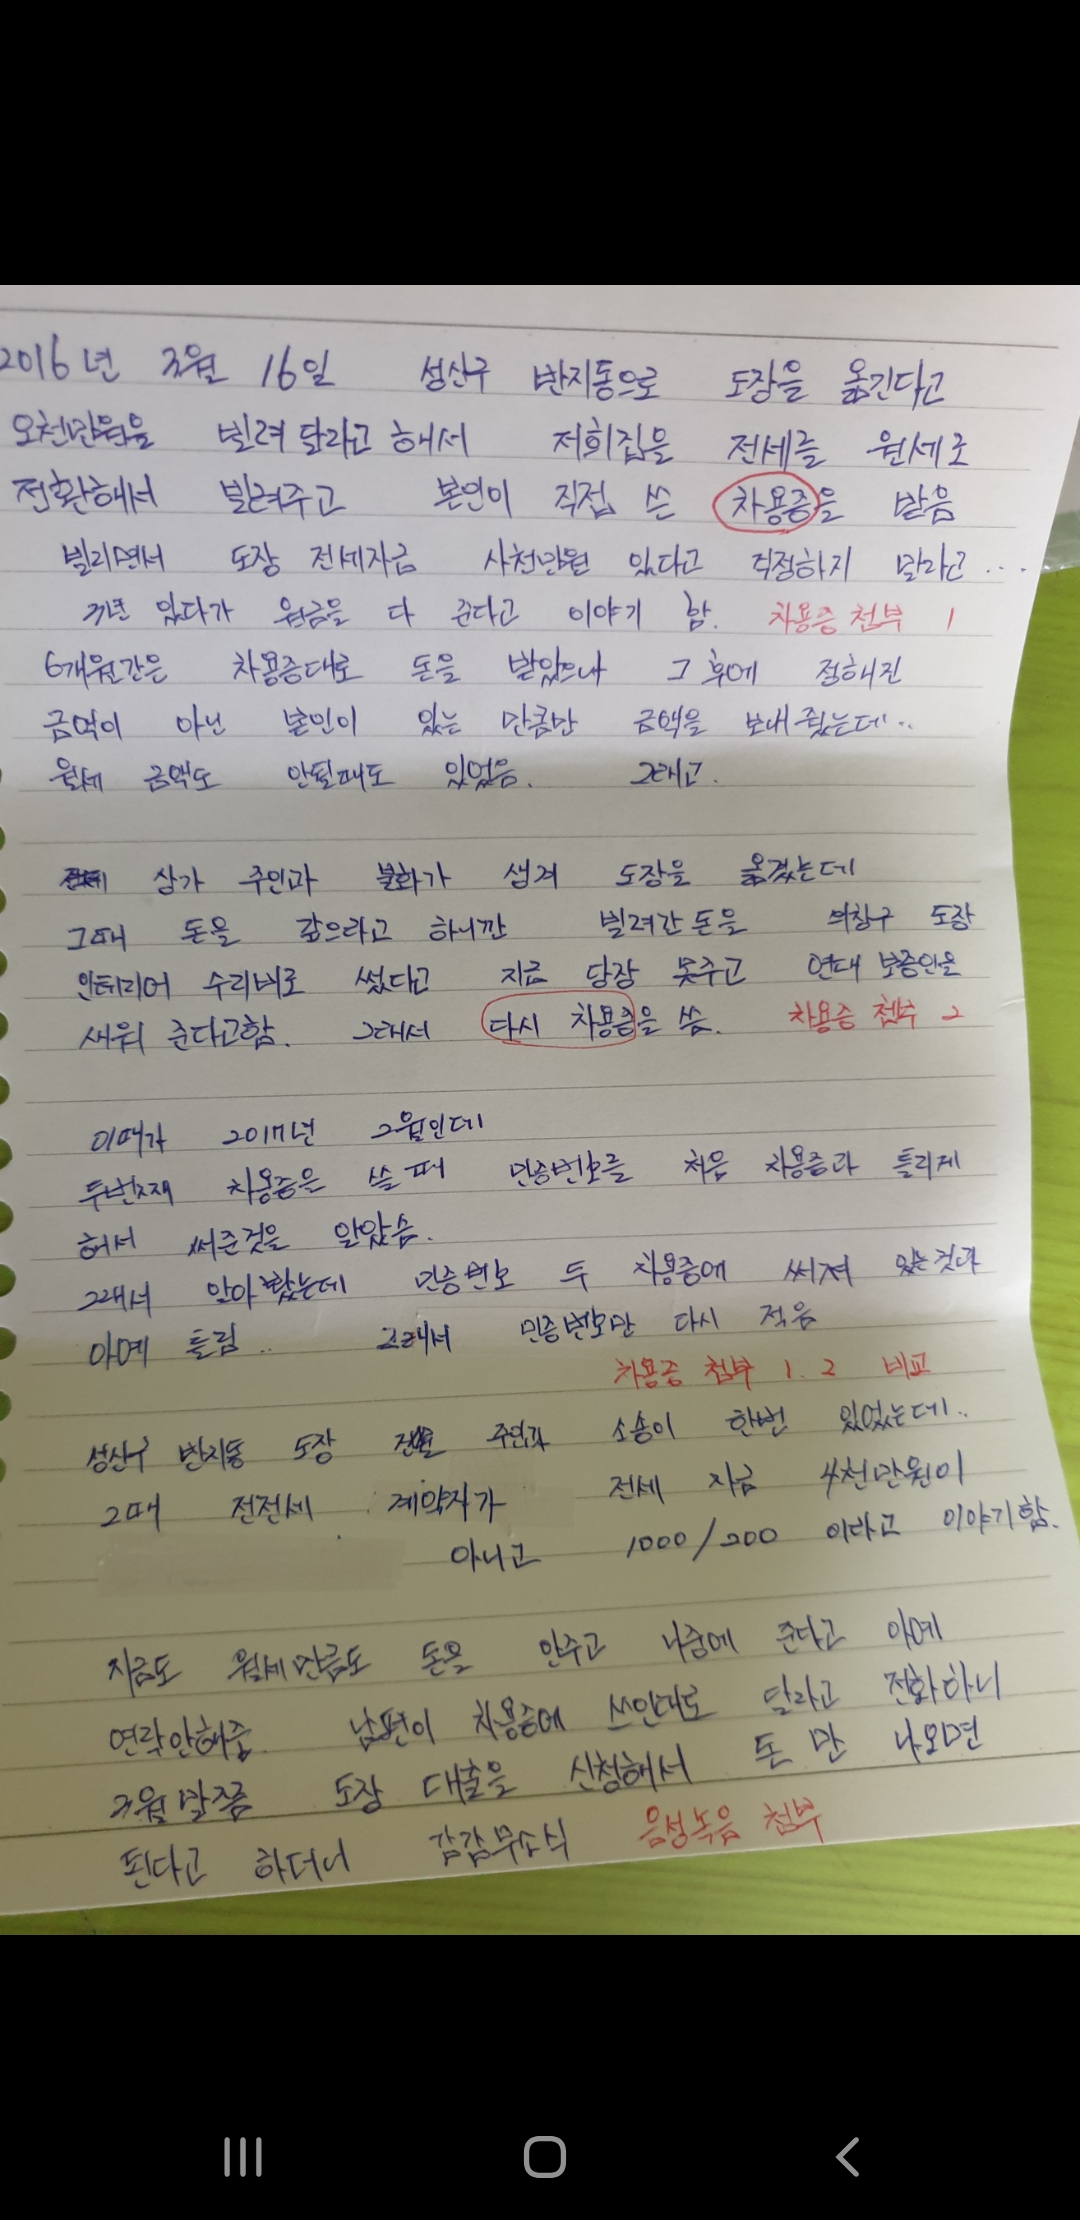 2016년 3월 16일 성산구 반지동으로 도장을 옮긴다고
오천만원을 빌려달라고 해서 저희집을 전세를 월세로
전환해서 빌려주고 본인이 직접 쓴 차용증을 받음
빌리면서 도장 전세자금 사천만원 있다고 걱정하지 말라고...
있다가 원금을 다 준다고 이야기 함. 차용증 첨부 1
6개월간은 차용증대로 돈을 받았으나 그 후에 정해진
금액이 아닌 본인이 있는 만큼만 금액을 보내줬는데..
월세 금액도 안될때도 있었음. 그래고.
상가 주인과 불화가 생겨 도장을 옮겼는데
그때 돈을 갚으라고 하니깐 빌려간돈을 의창구 도장
인테리어 수리비로 썼다고 지금 당장 못주고 연대 보증인을
새워 준다고함. 그래서 다시 차용증을 씀. 차용증 첨부 2
이때가 2017년 2월인데
두번째 차용증을 쓸때 민증번호를 처음 차용증과 틀리게
해서 써준것을 알았슴.
그래서 알아봤는데 민증번호 두 차용증에 써져 있는것과
아예 틀림.. 그래서 민증번호만 다시 적음
차용증 첨부 1. 2 비교
성산구 반지동 도장 주인과 소송이 한번 있었는데..
그때 전전세 계약자가 전세 자금 4천만원이
아니고 1000/200 이라고 이야기함.
지금도 월세만큼도 돈을 안주고 나중에 준다고 아예
연락안해줌. 남편이 차용증에 쓰인대로 달라고 전화하니
3월말쯤 도장 대출을 신청해서 돈만 나오면
된다고 하더니 감감무소식 음성녹음 첨부